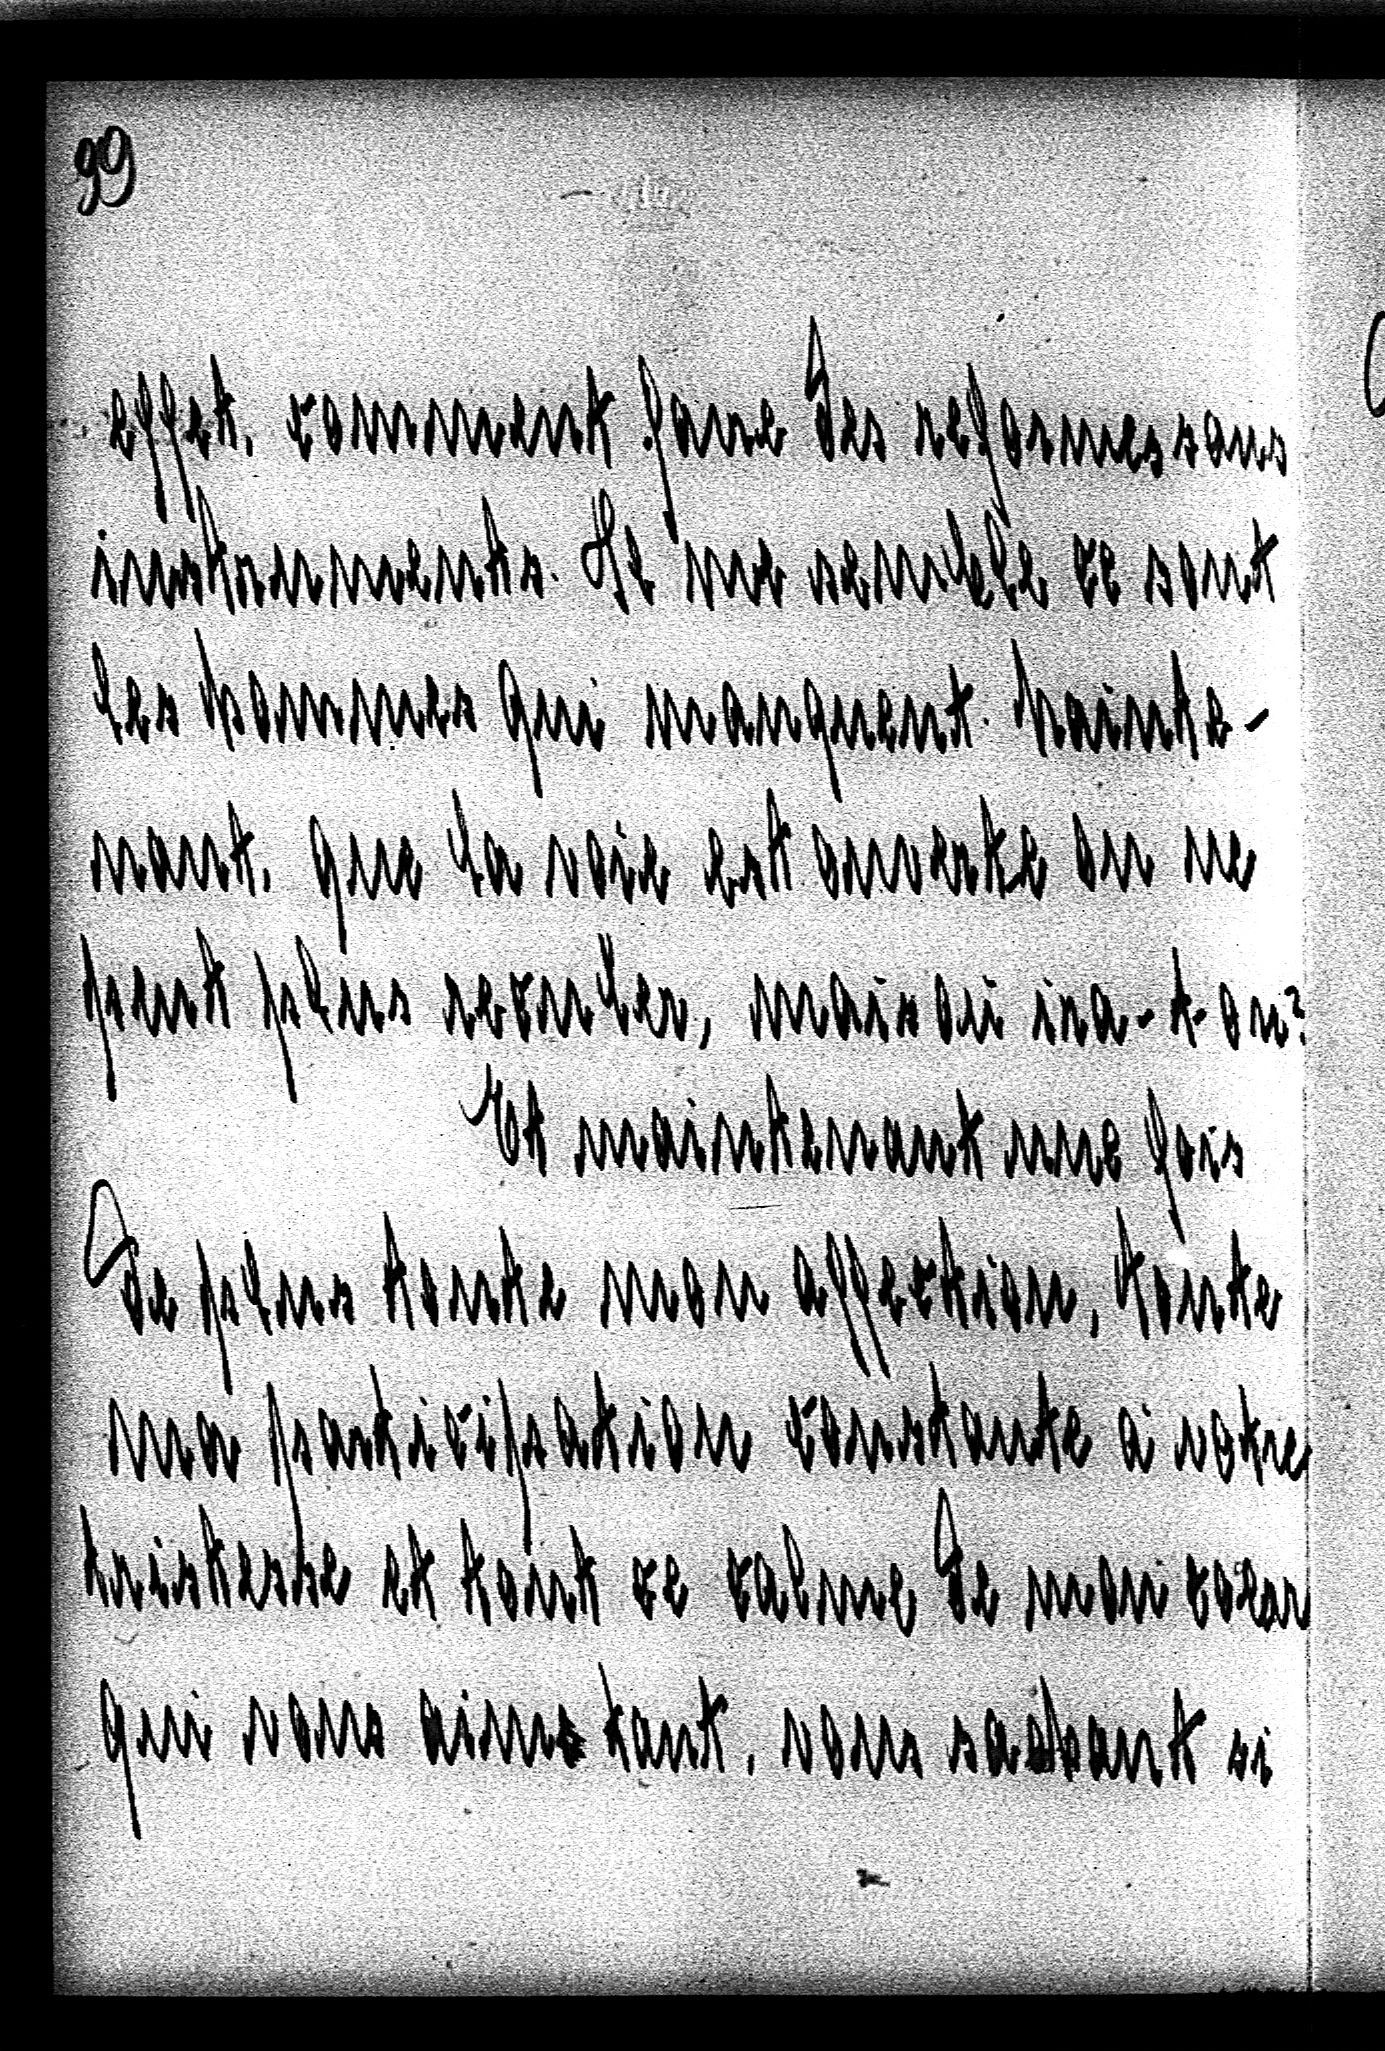 99
effet, comment faire des reformes sans
instruments. Il me semble ce sont
les hommes qui manquent. Mainte-
nant, que la voie est ouverte on ne
peut plus reculer, mais où ira-t-on?
Et maintenant une fois
de plus toute mon affection, toute
ma participation constante à votre
tristesse et tout ce calme de mon coeur
qui vous aime tant, vous sachant si